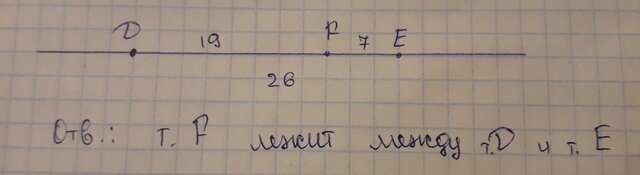 D 19 F 7 E
26
Отв.: т. F лежит между т.D и т. E